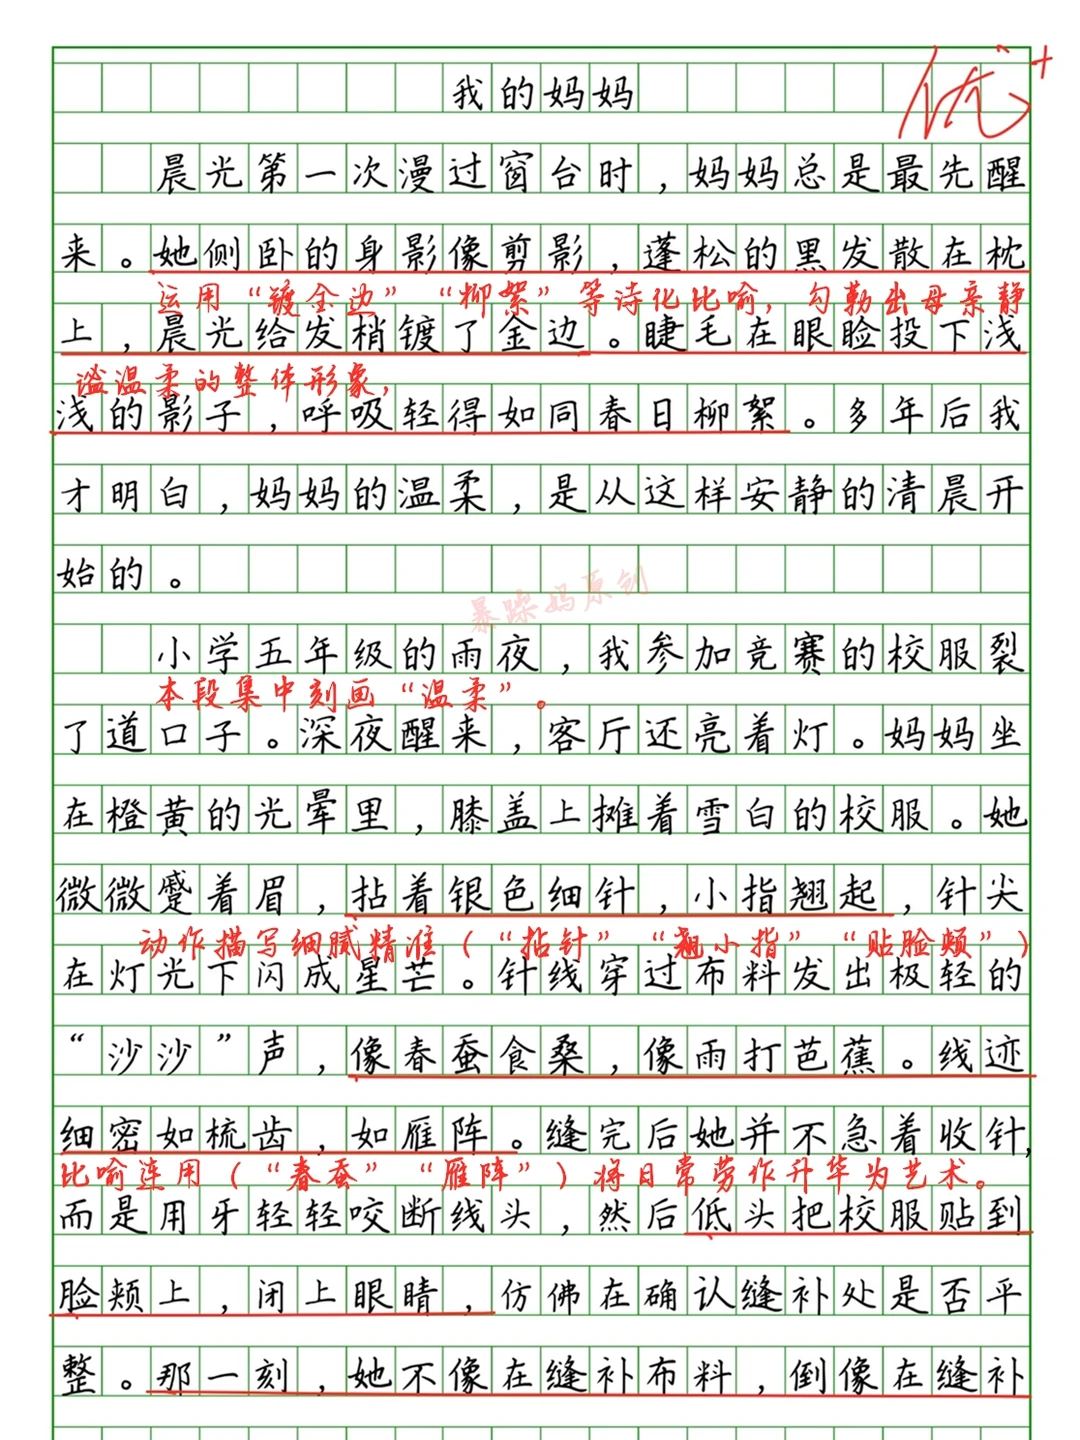 我的妈妈
优+
晨光第一次漫过窗台时，妈妈总是最先醒
来。她侧卧的身影像剪影，蓬松的黑发散在枕
运用“镀金边”“柳絮”等诗化比喻，勾勒出母亲静
上，晨光给发梢镀了金边。睫毛在眼睑投下浅
谧温柔的整体形象，
浅的影子，呼吸轻得如同春日柳絮。多年后我
才明白，妈妈的温柔，是从这样安静的清晨开
始的。
暴躁妈原创
小学五年级的雨夜，我参加竞赛的校服裂
本段集中刻画“温柔”。
了道口子。深夜醒来，客厅还亮着灯。妈妈坐
在橙黄的光晕里，膝盖上摊着雪白的校服。她
微微蹙着眉，拈着银色细针，小指翘起，针尖
动作描写细腻精准（“拈针”“翘小指”“贴脸颊”）
在灯光下闪成星芒。针线穿过布料发出极轻的
“沙沙”声，像春蚕食桑，像雨打芭蕉。线迹
细密如梳齿，如雁阵。缝完后她并不急着收针，
比喻连用（“春蚕”“雁阵”）将日常劳作升华为艺术。
而是用牙轻轻咬断线头，然后低头把校服贴到
脸颊上，闭上眼睛，仿佛在确认缝补处是否平
整。那一刻，她不像在缝补布料，倒像在缝补